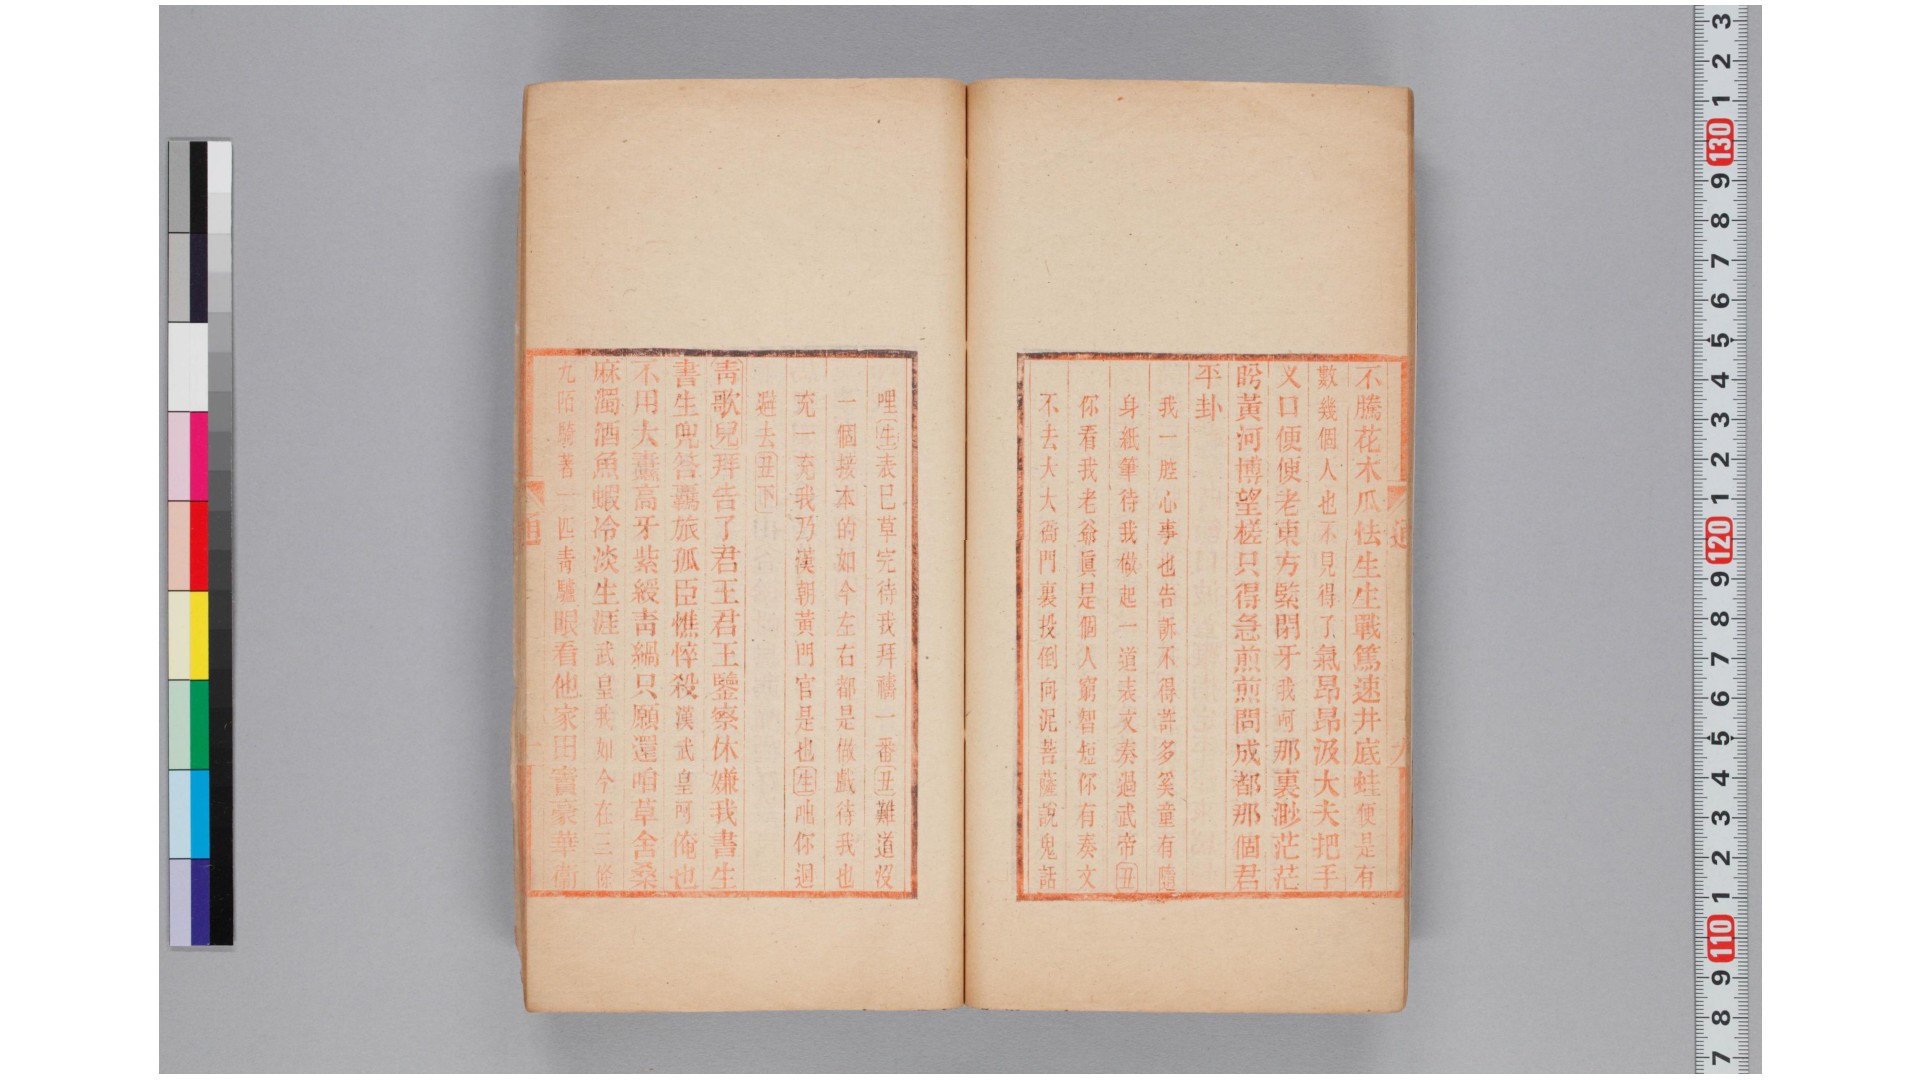 不騰花木瓜怯生生戰篤速井底蛙便是有
數幾個人也不見得了氣昂昂汲大夫把手
义口便便老東方緊閉牙我可那裏渺茫茫
盻黃河博望槎只得急煎煎問成都那個君
平卦
我一腔心事也告訴不得許多奚童有隨
身紙筆待我做起一道表文奏過武帝丑
你看我老爺眞是個人窮智短你有奏文
不去大大衙門裏投倒向泥菩薩說鬼話
哩生表已草完待我拜禱一番丑難道沒
一個接本的如今左右都是做戲待我也
充一充我乃漢朝黃門官是也生咄你迴
避去丑下
靑歌兒拜告了君王君王鑒察休嫌我書生
書生兜答羈旅孤臣憔悴殺漢武皇可俺也
不用大纛高牙紫綬靑緺只願還咱草舍桑
麻濁酒魚蝦冷淡生涯武皇我如今在三條
九陌騎著一匹靑驢眼看他家田竇豪華衞
通
九
3
2
1
130
9
8
7
6
5
4
3
2
1
120
9
8
7
6
5
4
3
2
1
110
9
8
7